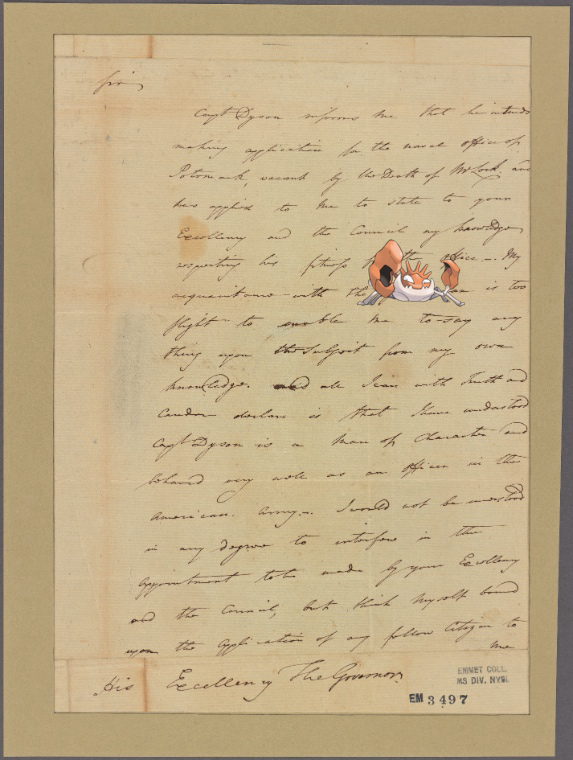 Sir
Capt Dyson informs me that he intends
making application for the naval office of
Potomack, vacant by the Death of Mr Lock, and
has applied to me to state to your
Excellency and the Council my knowledge
respecting his fitness the office — My
acquaintance with the is too
slight to enable me to say any
thing upon the Subject from my own
knowledge. and all I can with Truth and
Candor declare is that I have understood
Capt Dyson is a Man of Character and
behaved very well as an officer in the
American Army. I would not be understood
in any degree to interfere in the
appointment to be made by your Excellency
and the Council, but think myself bound
upon the application of any fellow Citizen to
me
His Excellency The Governor
EMMET COLL.
MS DIV. NYPL
EM 3497